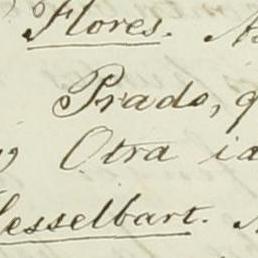 Flores.
Prado,
Otra
esselbart.